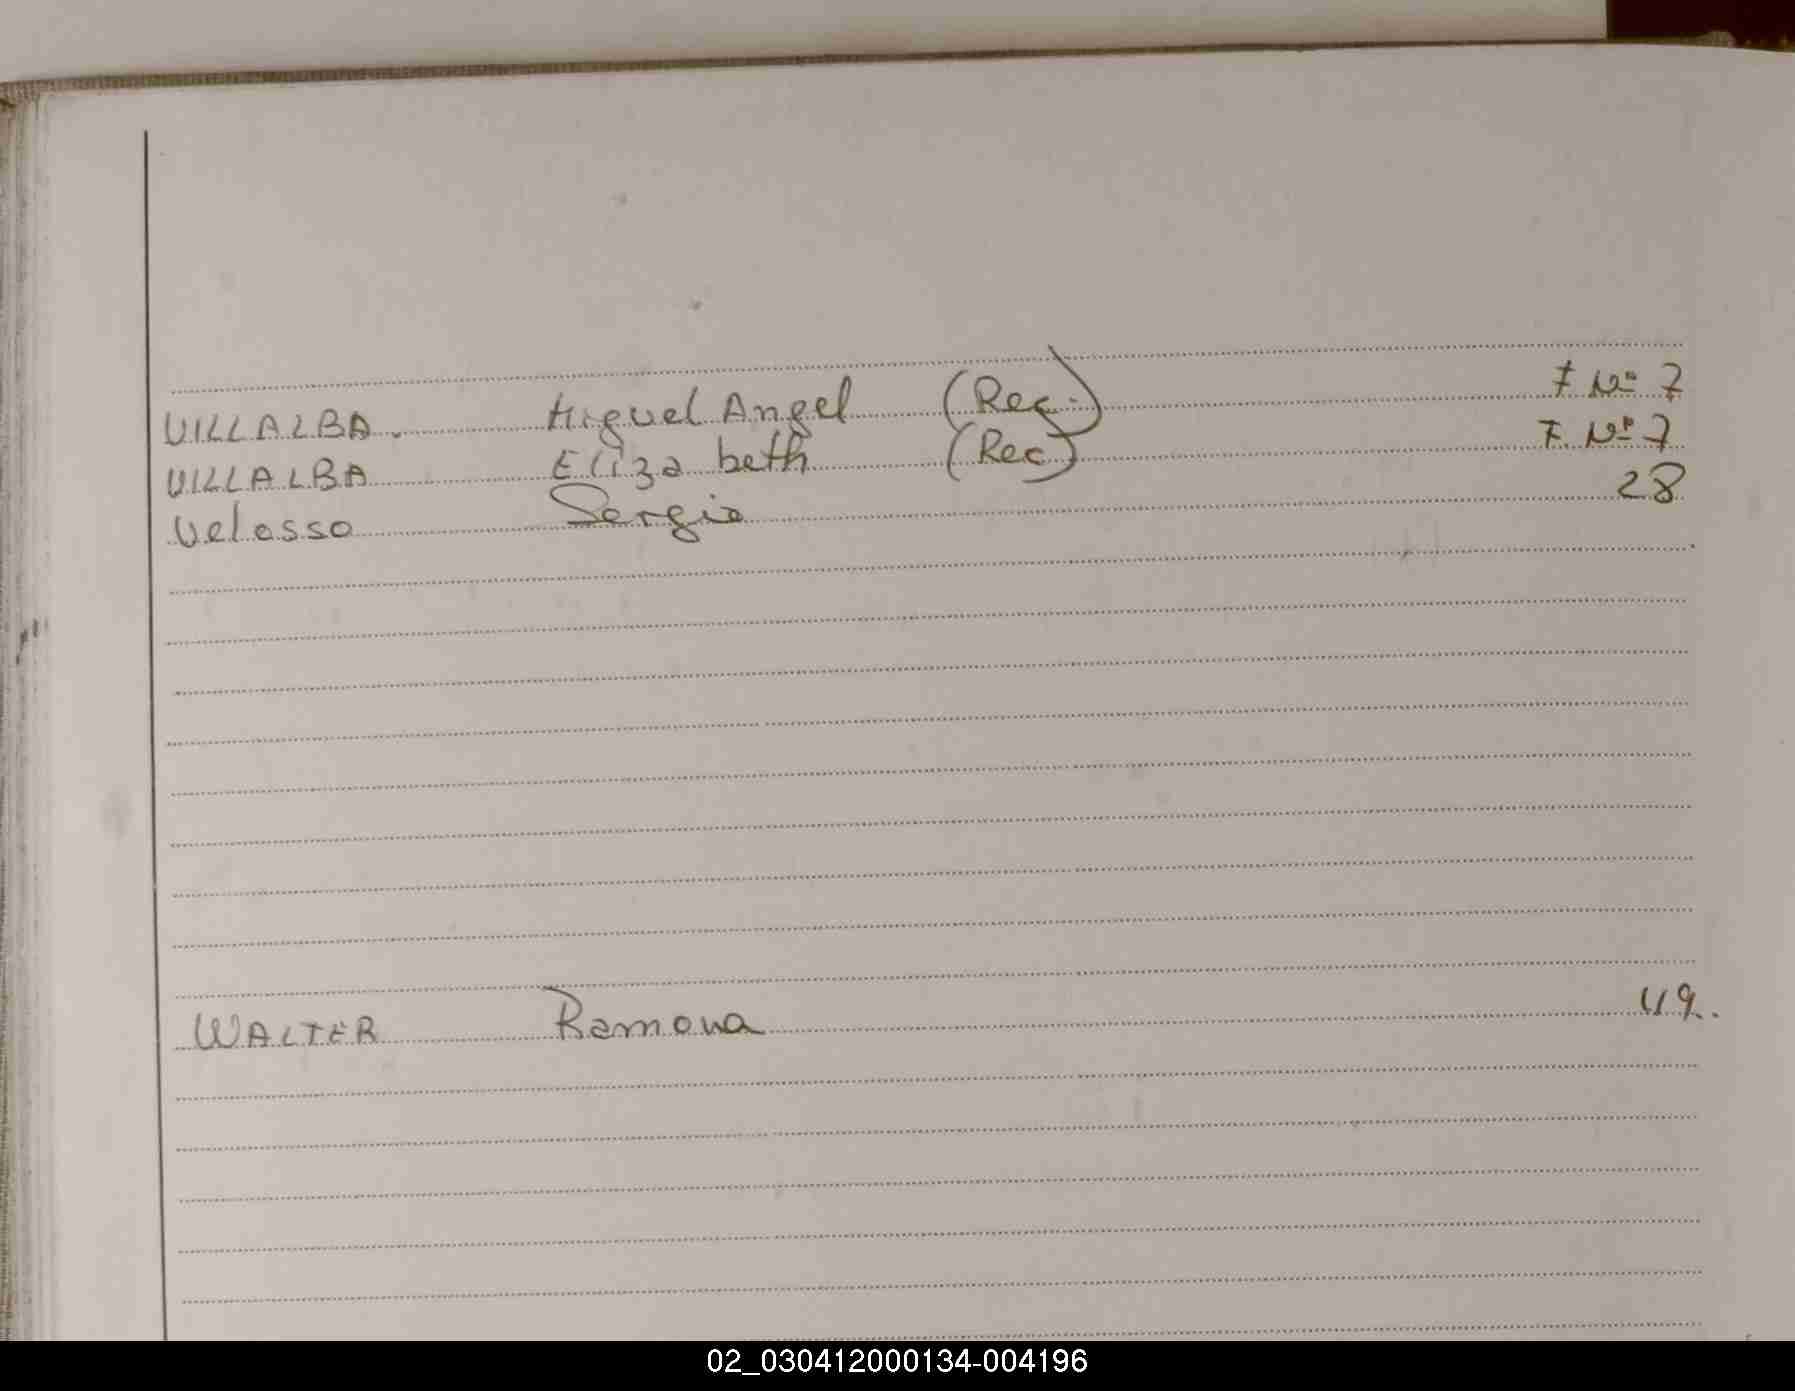 VILLALBA. Miguel Angel (Rec.) F Nº 7
VILLALBA Elizabeth (Rec) F. Nº 7
Velosso Sergio 28
WALTER Ramona 49.
02_030412000134-004196